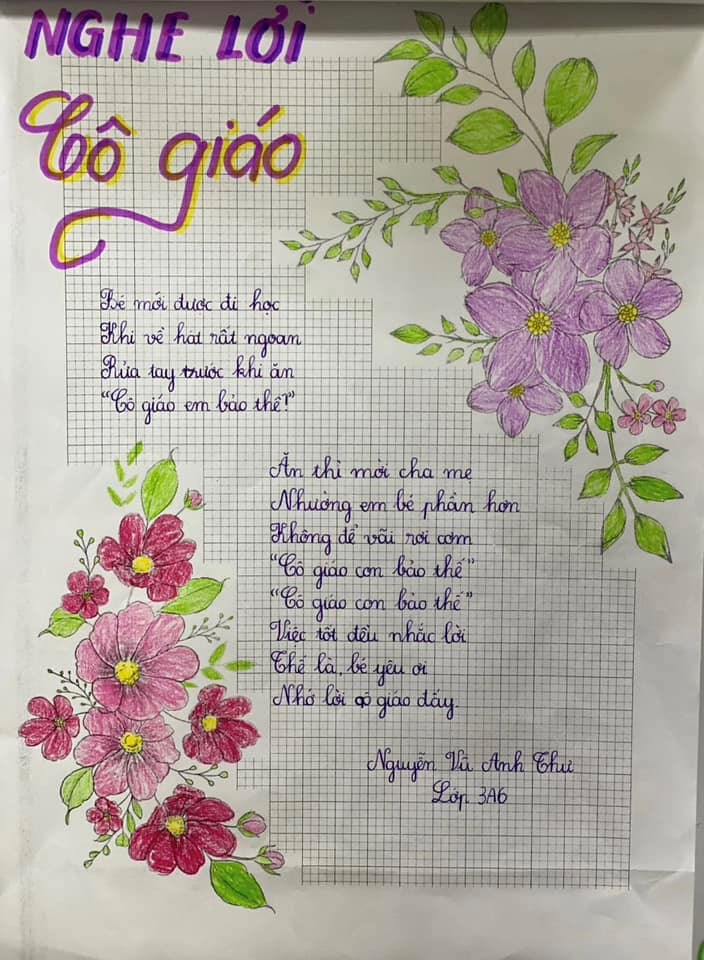 NGHE LỜI
Cô giáo
Bé mới được đi học
Khi về hát rất ngoan
Rửa tay trước khi ăn
“Cô giáo em bảo thế!”
Ăn thì mời cha mẹ
Nhường em bé phần hơn
Không để vãi rơi cơm
“Cô giáo con bảo thế”
“Cô giáo con bảo thế”
Việc tốt đều nhắc lời
Thế là, bé yêu ơi
Nhớ lời cô giáo đấy.
Nguyễn Vũ Anh Thư
Lớp 3A6